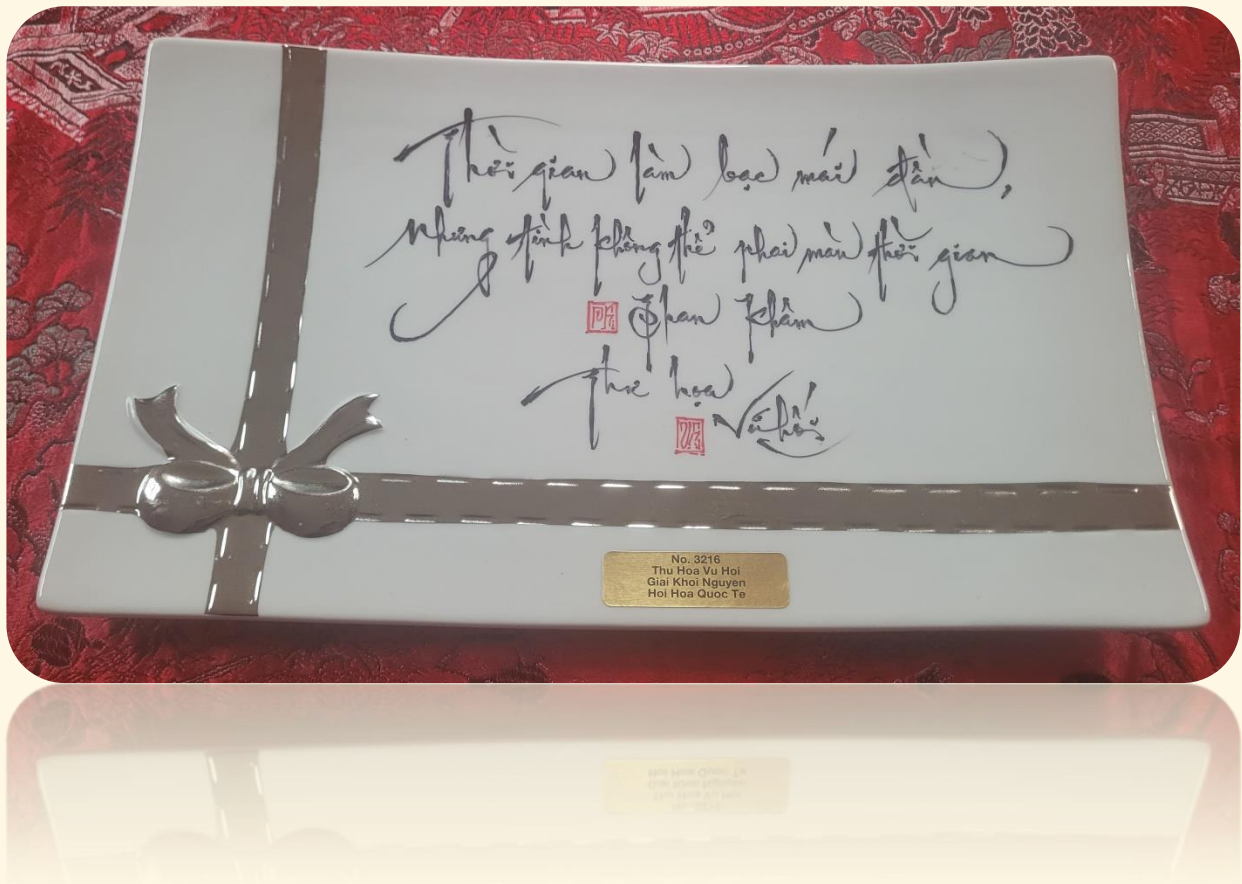 Thời gian làm bạc mái đầu,
nhưng tình không thể phai màu thời gian
Phan Khâm
Thư họa
Vũ Hối
No. 3216
Thu Hoa Vu Hoi
Giai Khoi Nguyen
Hoi Hoa Quoc Te